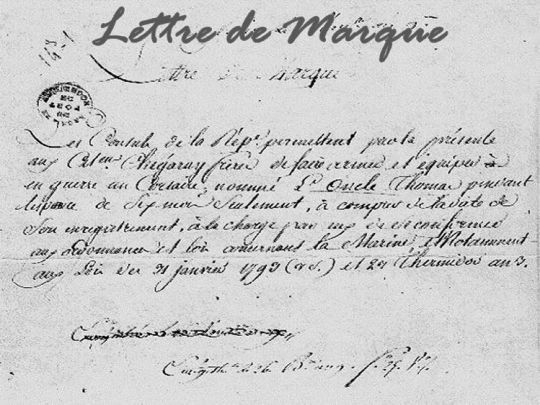 Lettre de Marque
Lettre de Marque
Les Consuls de la Répe. permettent par la présente
aux Citens. Chégaray frères de faire armer et équiper
en guerre un Corsaire nommé L'Oncle Thomas pendant
l'espace de Six mois Seulement, à compter de la date de
Son enregistrement, à la charge par eux de se conformer
aux ordonnances et lois concernant la Marine, et Notamment
aux Lois des 31 janvier 1793 (v.s.) et 23 Thermidor an 3.